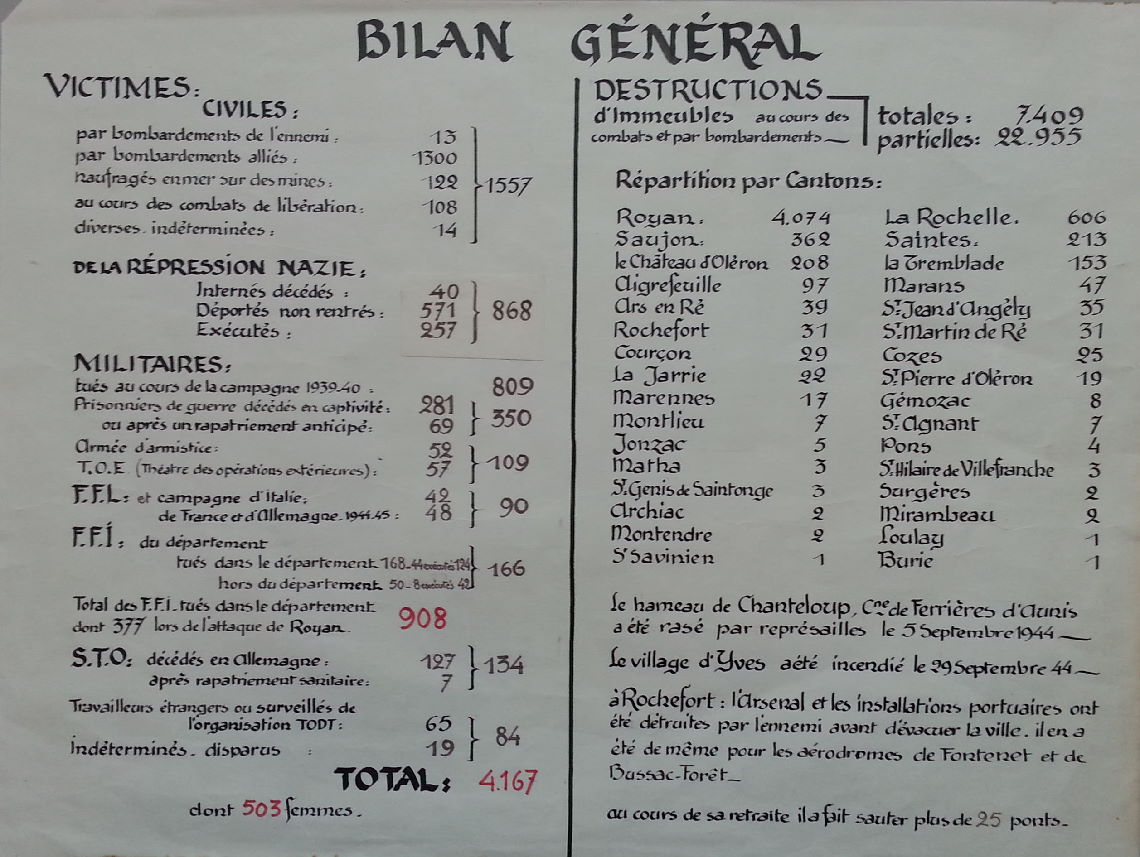 BILAN GÉNÉRAL
VICTIMES:
CIVILES:
par bombardements de l'ennemi: 13
par bombardements alliés: 1300
naufragés en mer sur des mines: 122
au cours des combats de libération: 108
diverses. indéterminées: 14
1557
DE LA RÉPRESSION NAZIE:
Internés décédés: 40
Déportés non rentrés: 571
Exécutés: 257
868
MILITAIRES:
tués au cours de la campagne 1939-40: 809
Prisonniers de guerre décédés en captivité: 281
ou après un rapatriement anticipé: 69
350
Armée d'armistice: 52
T.O.E. (Théatre des opérations extérieures): 57
109
F.F.L: et campagne d'Italie: 42
de France et d'Allemagne. 1944.45: 48
90
F.F.I: du département
tués dans le département 168-44 exécutés 124
hors du département 50-8 exécutés 42
166
Total des F.F.I. tués dans le département
dont 377 lors de l'attaque de Royan. 908
S.T.O: décédés en Allemagne: 127
après rapatriement sanitaire: 7
134
Travailleurs étrangers ou surveillés de
l'organisation TODT: 65
indéterminés. disparus: 19
84
TOTAL: 4.167
dont 503 femmes.
DESTRUCTIONS
d'Immeubles au cours des
combats et par bombardements
totales: 7.409
partielles: 22.955
Répartition par Cantons:
Royan. 4.074
Saujon. 362
le Château d'Oléron 208
Aigrefeuille 97
Ars en Ré 39
Rochefort 31
Courçon 29
La Jarrie 22
Marennes 17
Montlieu 7
Jonzac 5
Matha 3
St Genis de Saintonge 3
Archiac 2
Montendre 2
St Savinien 1
La Rochelle. 606
Saintes. 213
la Tremblade 153
Marans 47
St Jean d'Angély 35
St Martin de Ré 31
Cozes 25
St Pierre d'Oléron 19
Gémozac 8
St Agnant 7
Pons 4
St Hilaire de Villefranche 3
Surgères 2
Mirambeau 2
Loulay 1
Burie 1
le hameau de Chanteloup, Cne de Ferrières d'Aunis
a été rasé par représailles le 5 Septembre 1944
Le village d'Yves a été incendié le 29 Septembre 44
à Rochefort: l'Arsenal et les installations portuaires ont
été détruites par l'ennemi avant d'évacuer la ville. il en a
été de même pour les aérodromes de Fontenet et de
Bussac-Forêt
au cours de sa retraite il a fait sauter plus de 25 ponts.